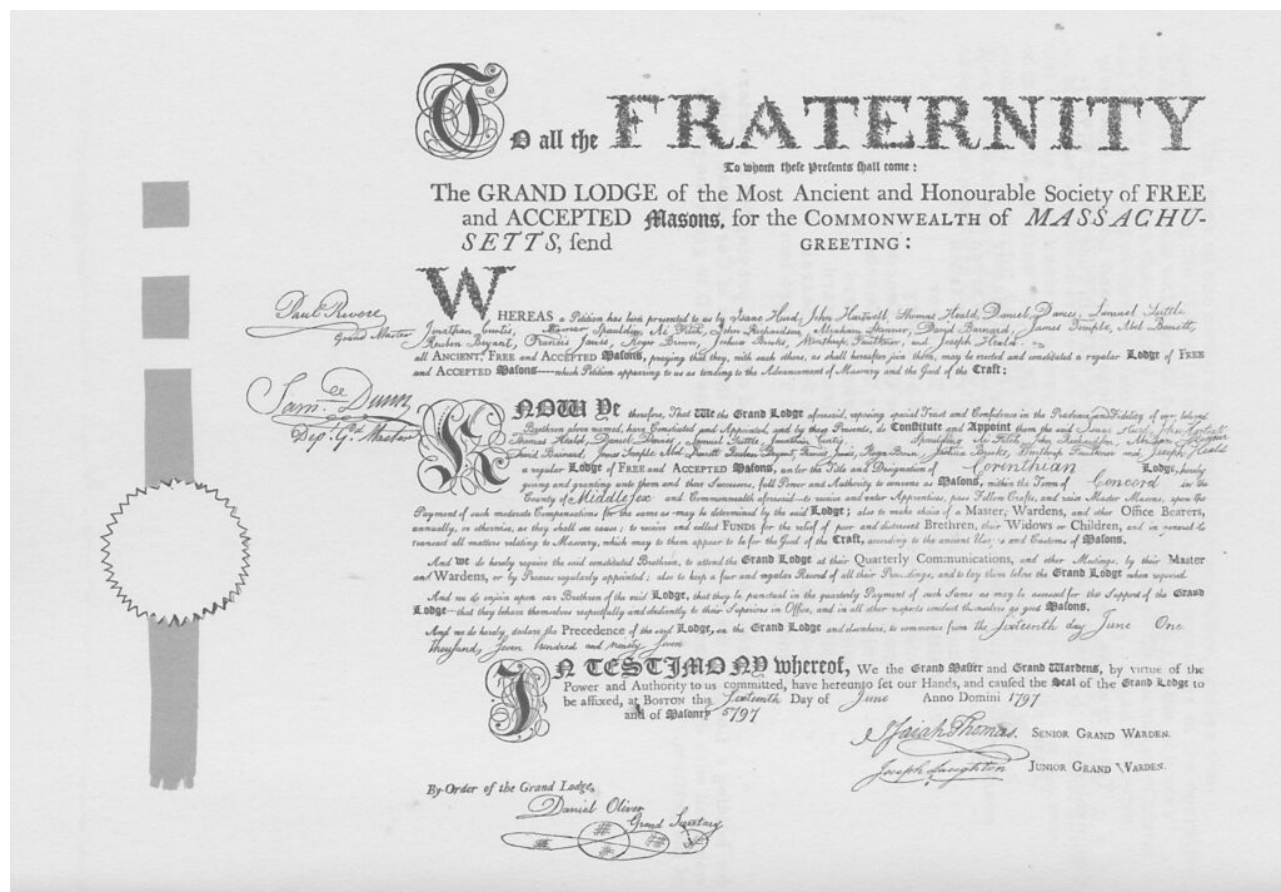 TO all the FRATERNITY
To whom theſe Preſents ſhall come:
The GRAND LODGE of the Most Ancient and Honourable Society of FREE
and ACCEPTED Masons, for the COMMONWEALTH of MASSACHU-
SETTS, ſend GREETING:
Paul Revere
Grand Master
WHEREAS a Petition has been presented to us by Isaac Hurd, John Hartwell, Thomas Heald, Daniel Davis, Samuel
Jonathan Curtis, Spaulding, John Richardson, Abraham Skinner, David Barnard, James Temple, Abel Barrett,
Reuben Bryant, Francis Jones, Roger Brown, Joshua Brooks, Winthrop Faulkner, and Joseph Heald.
all ANCIENT, FREE and ACCEPTED Masons, praying that they, with such others, as shall hereafter join them, may be erected and constituted a regular Lodge of FREE
and ACCEPTED Masons——which Petition appearing to us as tending to the Advancement of Masonry and the Good of the Craft:
Sam.ˡ Dunn
Dep.ᵗ G.ᵈ Master
KNOW YE therefore, That We the Grand Lodge aforesaid, reposing special Trust and Confidence in the Prudence and Fidelity of our beloved
Brethren above named, have Constituted and Appointed, and by these Presents, do Constitute and Appoint them the said Isaac Hurd, John Hartwell
Thomas Heald, Daniel Davis, Samuel Jonathan Curtis, Spaulding John Richardson, Abraham Skinner
David Barnard, James Temple Abel Barrett Reuben Bryant, Francis Jones, Roger Brown, Joshua Brooks, Winthrop Faulkner and Joseph Heald
a regular Lodge of FREE and ACCEPTED Masons, under the Title and Designation of Corinthian Lodge, hereby
giving and granting unto them and their Successors, full Power and Authority to convene as Masons, within the Town of Concord in the
County of Middleſex and Commonwealth aforesaid—to receive and enter Apprentices, pass Fellow Crafts, and raise Master Masons, upon the
Payment of such moderate Compensations for the same as may be determined by the said Lodge; also to make choice of a Master, Wardens, and other Office Bearers,
annually, or otherwise, as they shall see cause; to receive and collect FUNDS for the relief of poor and distressed Brethren, their Widows or Children, and in general to
transact all matters relating to Masonry, which may to them appear to be for the Good of the Craft, according to the ancient Usages and Customs of Masons.
And we do hereby require the said constituted Brethren, to attend the Grand Lodge at their Quarterly Communications, and other Meetings, by their Master
and Wardens, or by Proxies regularly appointed; also to keep a fair and regular Record of all their Proceedings, and to lay them before the Grand Lodge when required
And we do enjoin upon our Brethren of the said Lodge, that they be punctual in the quarterly Payment of such Sums as may be assessed for the Support of the Grand
Lodge—that they behave themselves respectfully and obediently to their Superiors in Office, and in all other respects conduct themselves as good Masons.
And we do hereby, declare the Precedence of the said Lodge, in the Grand Lodge and elsewhere, to commence from the Sixteenth day June One
thousand, Seven hundred and ninety Seven
IN TESTIMONY whereof, We the Grand Maſter and Grand Wardens, by virtue of the
Power and Authority to us committed, have hereunto ſet our Hands, and cauſed the Seal of the Grand Lodge to
be affixed, at BOSTON this Sixteenth Day of June Anno Domini 1797
and of Masonry 5797
Isaiah Thomas. SENIOR GRAND WARDEN.
Joseph Laughton JUNIOR GRAND WARDEN.
By Order of the Grand Lodge,
Daniel Oliver
Grand Secretary